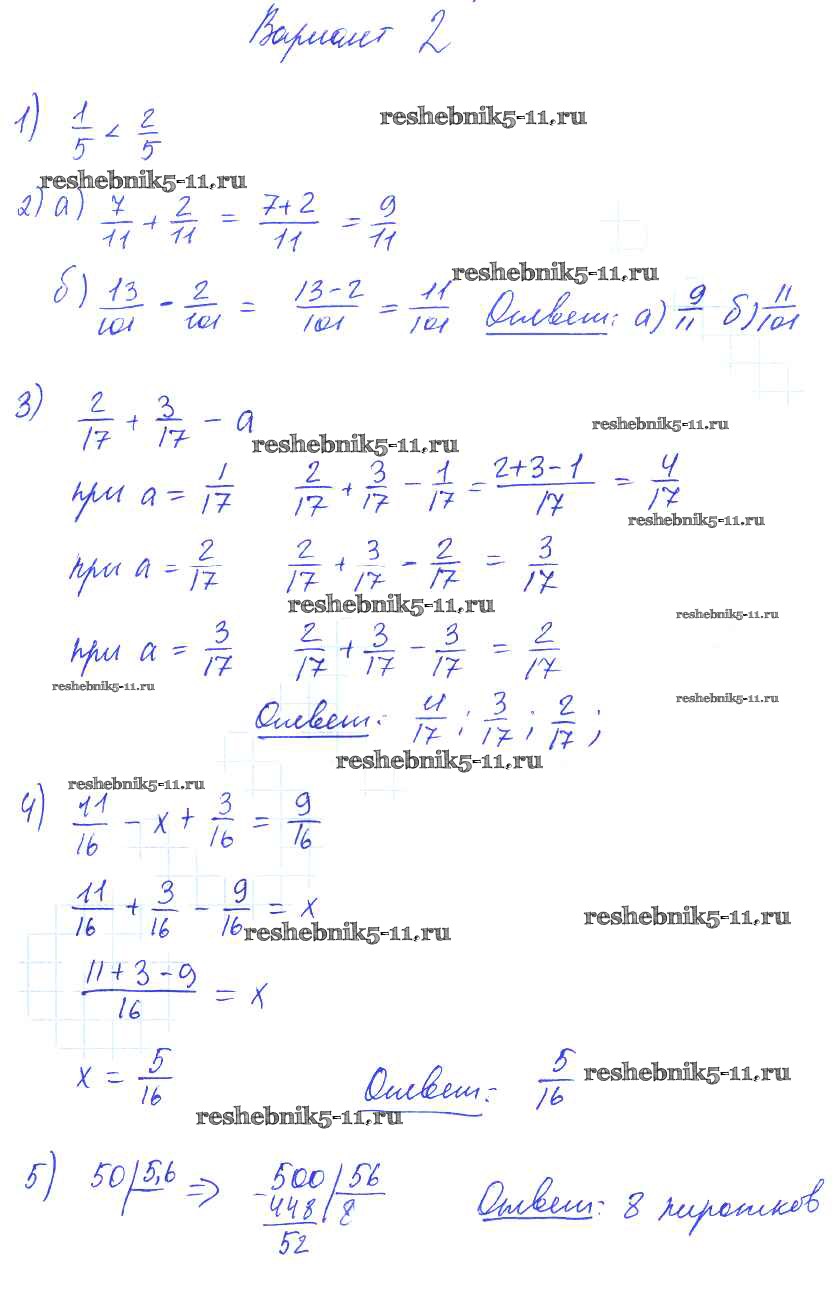 Вариант 2
1) 1/5 < 2/5
reshebnik5-11.ru
reshebnik5-11.ru
2) а) 7/11 + 2/11 = (7+2)/11 = 9/11
reshebnik5-11.ru
б) 13/101 - 2/101 = (13-2)/101 = 11/101 Ответ: а) 9/11 б) 11/101
3) 2/17 + 3/17 - a
reshebnik5-11.ru
reshebnik5-11.ru
при a = 1/17 2/17 + 3/17 - 1/17 = (2+3-1)/17 = 4/17
reshebnik5-11.ru
при a = 2/17 2/17 + 3/17 - 2/17 = 3/17
reshebnik5-11.ru
reshebnik5-11.ru
при a = 3/17 2/17 + 3/17 - 3/17 = 2/17
reshebnik5-11.ru
reshebnik5-11.ru
Ответ: 4/17 ; 3/17 ; 2/17 ;
reshebnik5-11.ru
reshebnik5-11.ru
4) 11/16 - x + 3/16 = 9/16
11/16 + 3/16 - 9/16 = x
reshebnik5-11.ru
reshebnik5-11.ru
(11+3-9)/16 = x
x = 5/16 Ответ: 5/16
reshebnik5-11.ru
reshebnik5-11.ru
5) 50 | 5,6 => 500 | 56
- 448 | 8
52
Ответ: 8 пирожков